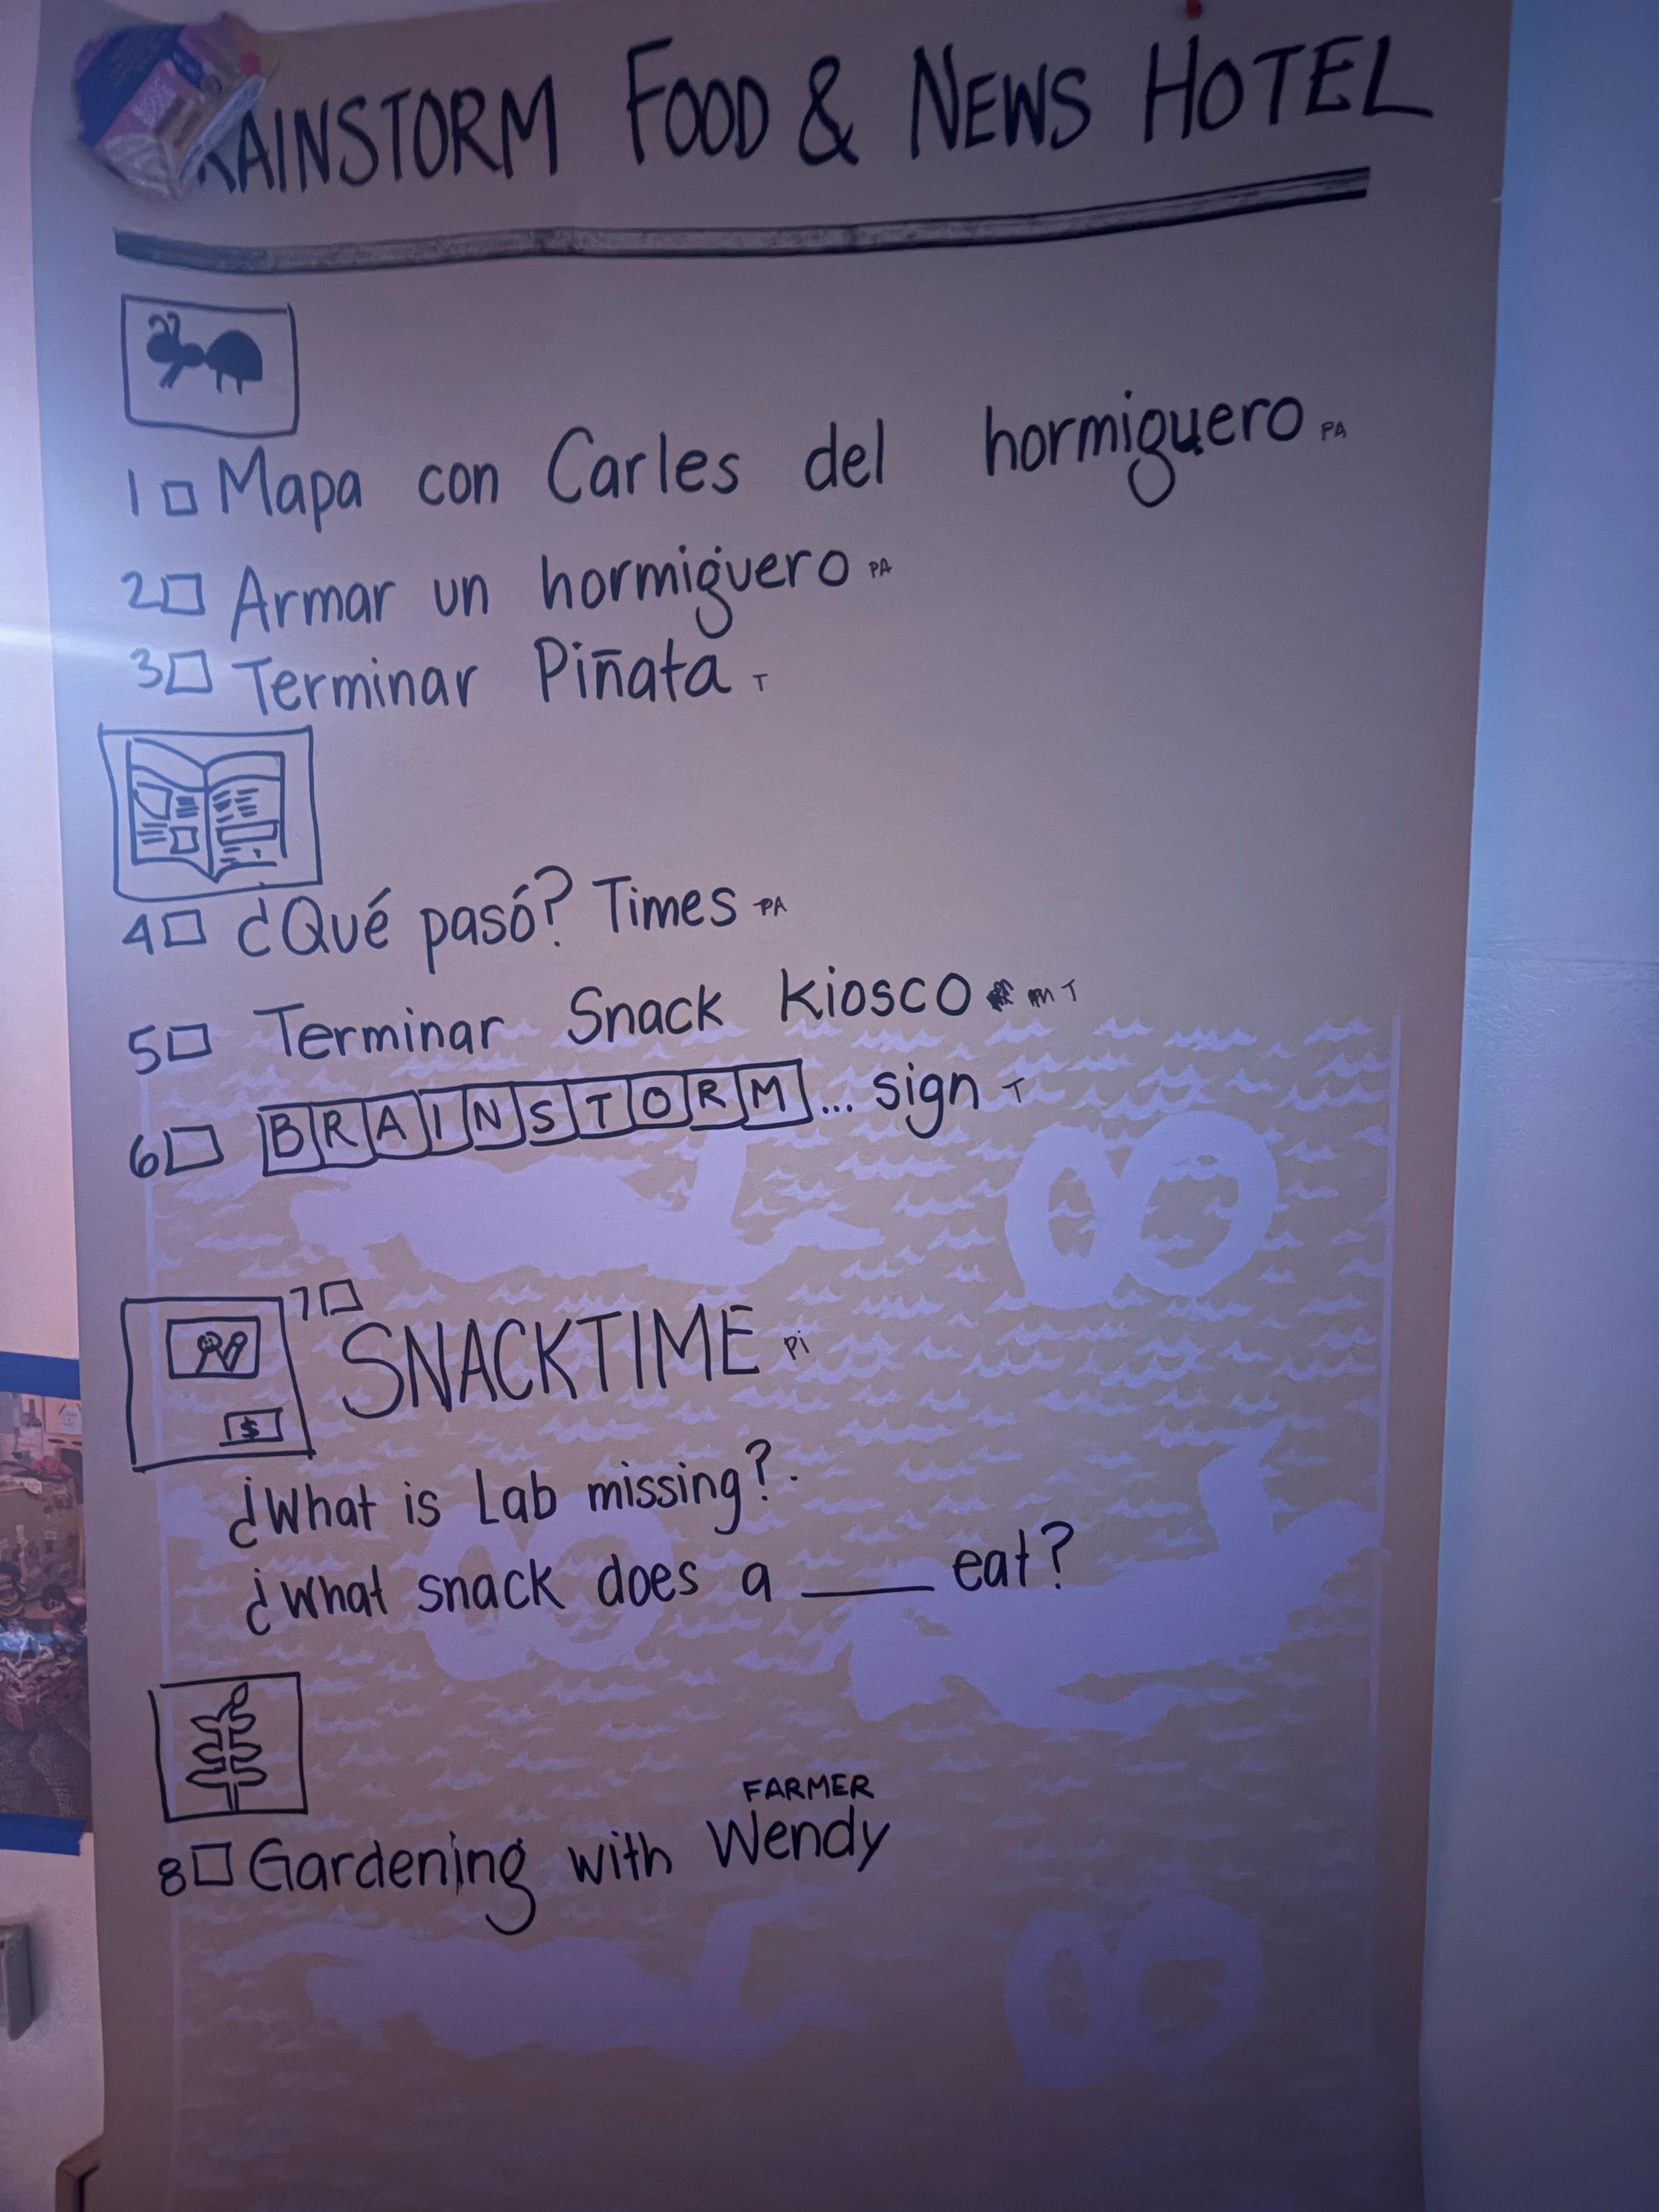 RAINSTORM FOOD & NEWS HOTEL
1 Mapa con Carles del hormiguero PA
2 Armar un hormiguero PA
3 Terminar Piñata T
4 ¿Qué pasó? Times PA
5 Terminar Snack kiosco T
6 BRAINSTORM... sign T
7
SNACKTIME Pi
$
¿What is Lab missing?
¿What snack does a ____ eat?
FARMER
8 Gardening with Wendy